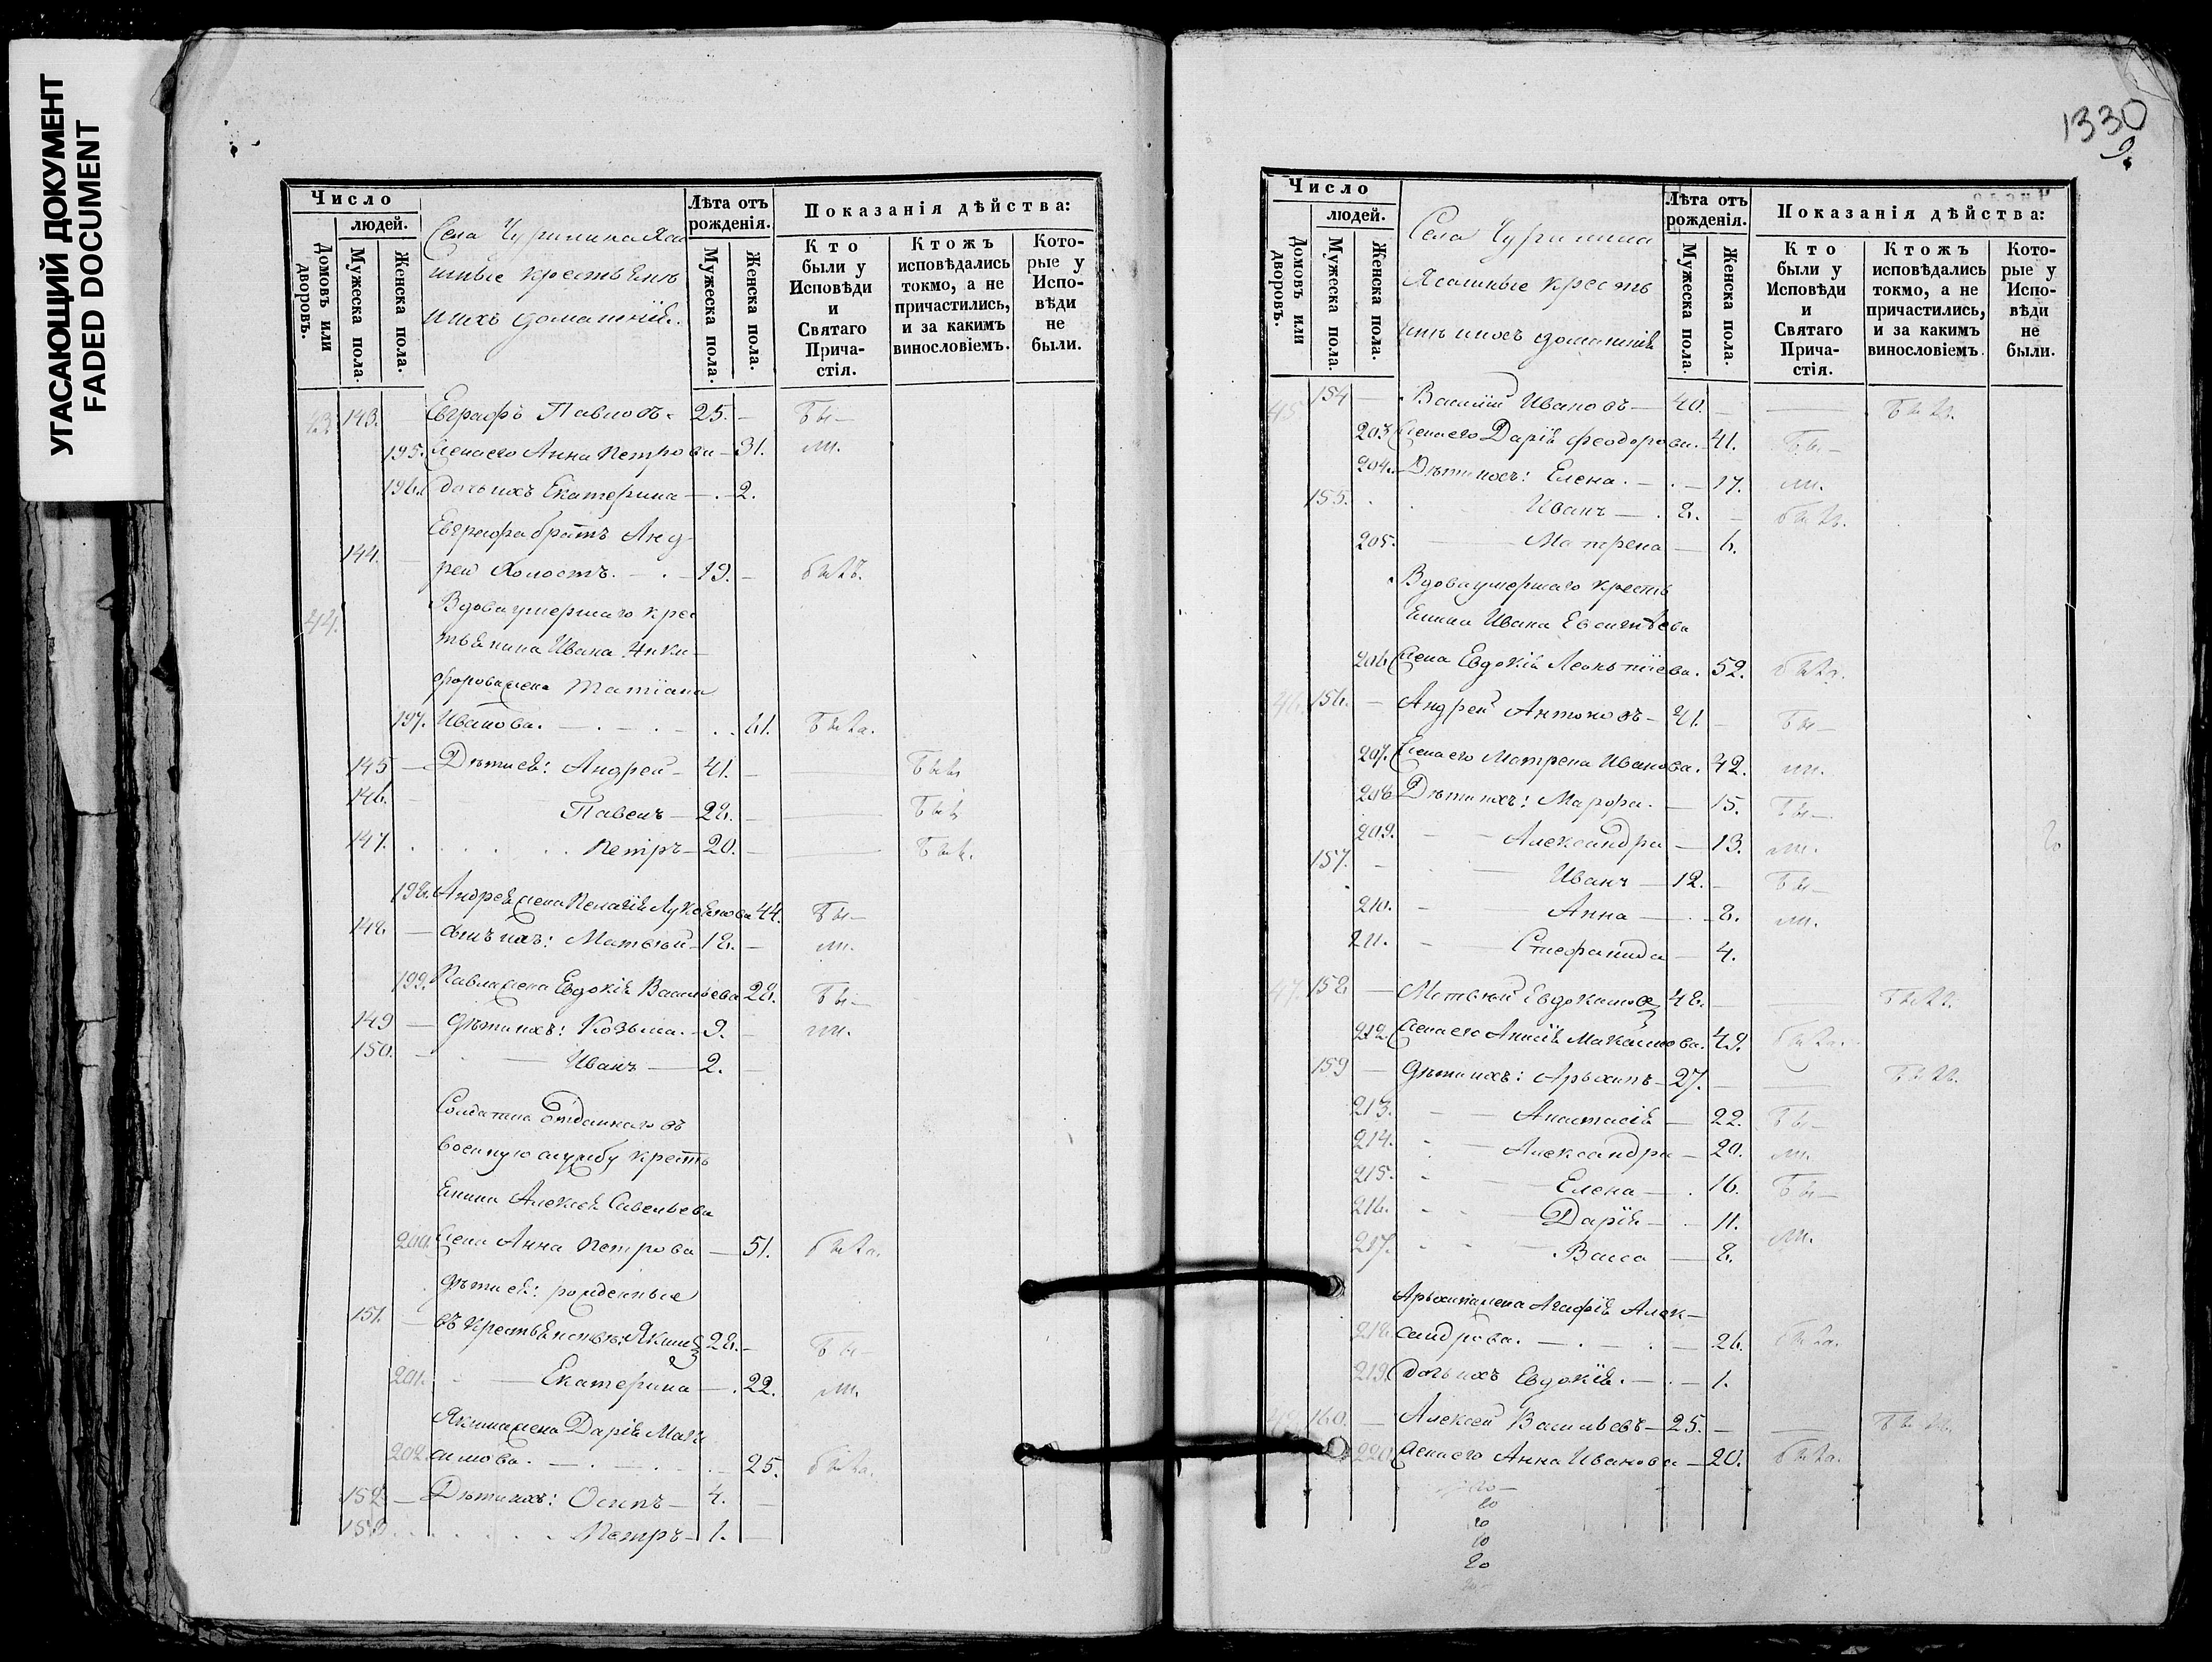 УГАСАЮЩИЙ ДОКУМЕНТ
FADED DOCUMENT
Число
людей.
Домовъ или дворовъ.
Мужеска пола.
Женска пола.
Села Чурилина Яса
шные крестьяне
и ихъ домашніе.
Лѣта отъ рожденія.
Мужеска пола.
Женска пола.
Показанія дѣйства:
Кто были у Исповѣди и Святаго Причастія.
Ктожъ исповѣдались токмо, а не причастились, и за какимъ винословіемъ.
Которые у Исповѣди не были.
43. 143. Евграфъ Павловъ - 25. - бы-
195. жена его Анна Петрова - 31. ли.
196. дочь ихъ Екатерина - 2.
Евграфа братъ Анд-
144. рей холостъ. - 19. - былъ.
44. Вдова умершаго крес
тьянина Ивана Ники-
форова жена Татіана
197. Иванова. - 61. была.
145 - Дѣти ея: Андрей - 41. -
146. Павелъ - 28. -
147. Петръ - 20. -
198. Андрея жена Пелагія Лукоянова 44. бы-
148 - сынъ ихъ: Матвѣй - 18. - ли.
199. Павла жена Евдокія Васильева 28. бы-
149 - дѣти ихъ: Козьма. - 9. - ли.
150. Иванъ - 2. -
Солдатка отданнаго въ
военную службу кресть
янина Алексѣя Савельева
200. жена Анна Петрова - 51. была.
дѣти ея: рожденные
151. въ крестьянствѣ: Якимъ 28. - бы-
201. Екатерина - 22. ли.
Якима жена Дарія Мак
202. симова. - 25. была.
152 - Дѣти ихъ: Осипъ - 4. -
153. Петръ - 1. -
1330
9.
Число
людей.
Домовъ или дворовъ.
Мужеска пола.
Женска пола.
Села Чурилина
Ясашные кресть
яне и ихъ домашнія
Лѣта отъ рожденія.
Мужеска пола.
Женска пола.
Показанія дѣйства:
Кто были у Исповѣди и Святаго Причастія.
Ктожъ исповѣдались токмо, а не причастились, и за какимъ винословіемъ.
Которые у Исповѣди не были.
45. 154 - Василій Ивановъ - 40. - былъ.
203 жена его Дарія Феодорова. 41. бы-
204. Дѣти ихъ: Елена. - 17. ли.
155. Иванъ - 8. - былъ.
205. Матрена - 6.
Вдова умершаго кресть
янина Ивана Евсигнѣева
206 жена Евдокія Леонтіева. 52. была.
46. 156. - Андрей Антоновъ - 41. - бы-
207. жена его Матрена Иванова. 42. ли.
208 Дѣти ихъ: Марфа. - 15. бы-
209. Александра - 13. ли.
157. Иванъ - 12. - бы-
210. Анна - 8. ли.
211. Стефанида - 4.
47. 158 - Матвѣй Евдокимовъ 48. - былъ.
212. жена его Анисія Максимова. 49. была.
159 - дѣти ихъ: Архипъ - 27. - былъ.
213. Анастасія - 22. бы-
214. Александра - 20. ли.
215. Елена - 16. бы-
216. Дарія - 11. ли.
217. Васса - 8.
Архипа жена Агафія Алек-
218. сандрова. - 26. была.
219. дочь ихъ Евдокія. - 1.
160. - Алексей Васильевъ - 25. - былъ.
220. жена его Анна Иванова - 20. была.
20
20